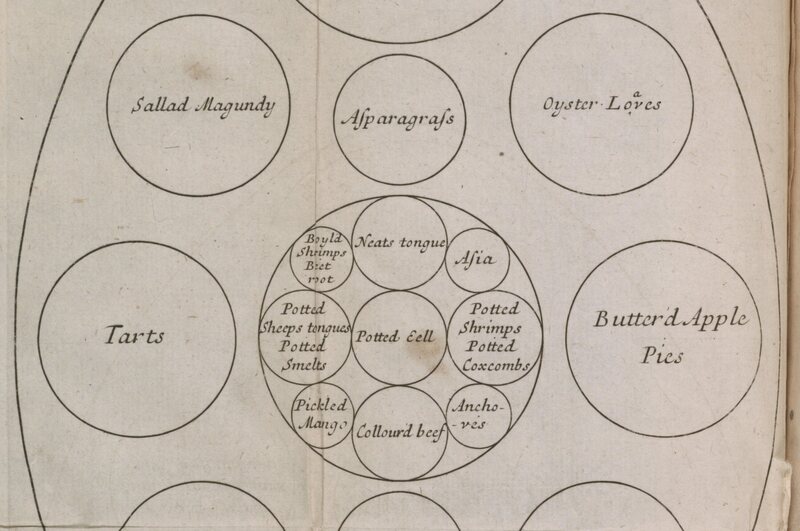 Sallad Magundy
Aſparagraſs
Oyster Loaves
Boyld
Shrimps
Beet
root
Neats tongue
Aſia
Potted
Sheeps tongues
Potted
Smelts
Potted Eell
Potted
Shrimps
Potted
Coxcombs
Tarts
Butter'd Apple
Pies
Pickled
Mango
Collourd beef
Ancho-
-ves